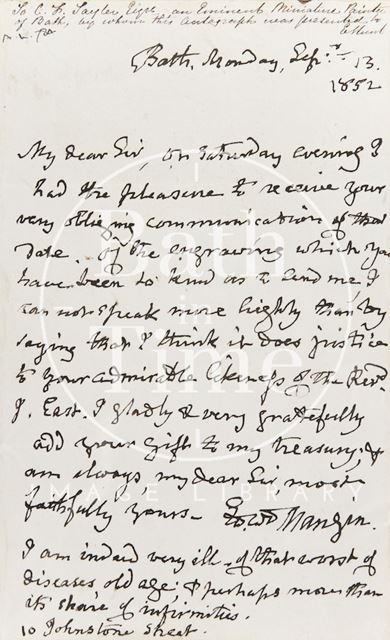 To C. F. Sayler, Esqre, an Eminent Miniature Painter
of Bath, by whom this Autograph was presented to
Bath, Monday, Sepr. 13.
1852
My dear Sir, on Saturday evening I
had the pleasure to receive your
very obliging communication of that
date. Of the engraving which you
have been so kind as to send me, I
can not speak more highly than by
saying that I think it does justice
to your admirable likeness of the Revd
J. East. I gladly & very gratefully
add your gift to my treasury, &
am always my dear Sir most
faithfully yours — Edwd Mangin.
I am indeed very ill - of that worst of
diseases old age; & perhaps more than
its share of infirmities.
10 Johnstone Street
Bath in Time
IMAGE LIBRARY